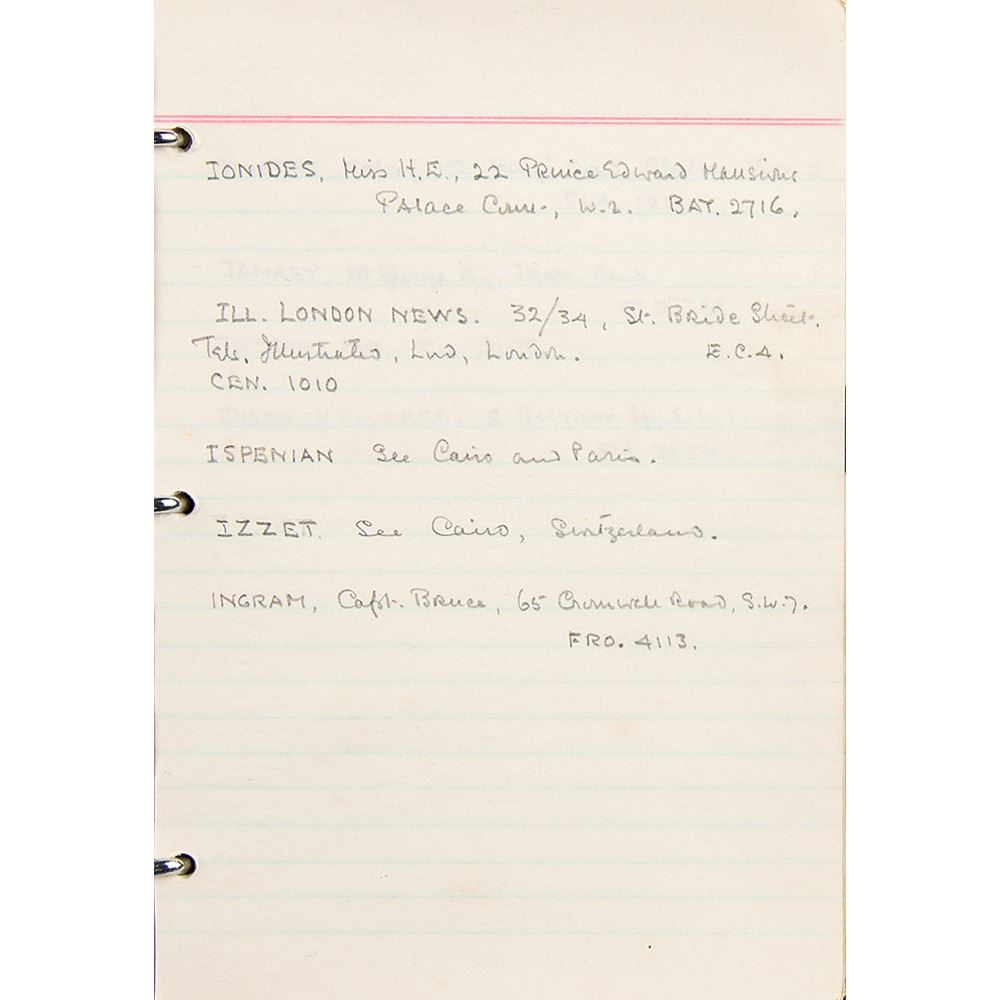 IONIDES, Miss H.E., 22 Prince Edward Mansions
Palace Court, W.2. BAY. 2716.
ILL. LONDON NEWS. 32/34, St. Bride Street.
Tels. Illustratio, Lud, London. E.C.4.
CEN. 1010
ISPENIAN See Cairo and Paris.
IZZET. See Cairo, Switzerland.
INGRAM, Capt. Bruce, 65 Cromwell Road, S.W.7.
FRO. 4113.